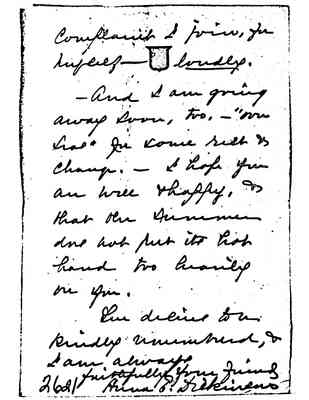 Complaint I join, for
myself — loudly.
— And I am going
away soon, too, — "over
Sea" for some rest &
change. — I hope you
are well & happy, &
that the Summer
does not put its hot
hand too heavily
on you.
desire to be
kindly remembered, &
I am always
faithfully Your friend
Anna E. Dickinson